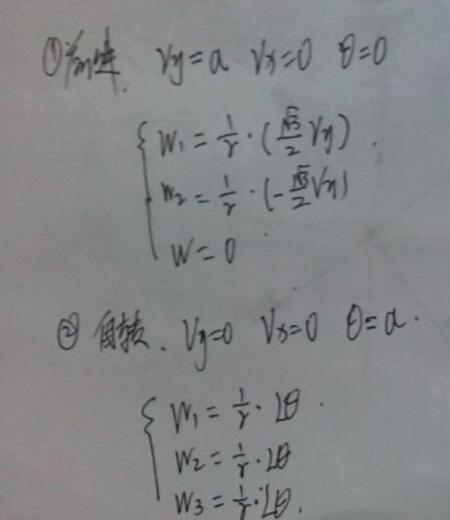 ① 前进. Vy=a Vx=0 θ=0
W₁ = 1/r · (√3/2 Vy).
W₂ = 1/r · (-√3/2 Vy)
W = 0
② 自转. Vy=0 Vx=0 θ=a.
W₁ = 1/r · Lθ.
W₂ = 1/r · Lθ
W₃ = 1/r · Lθ.